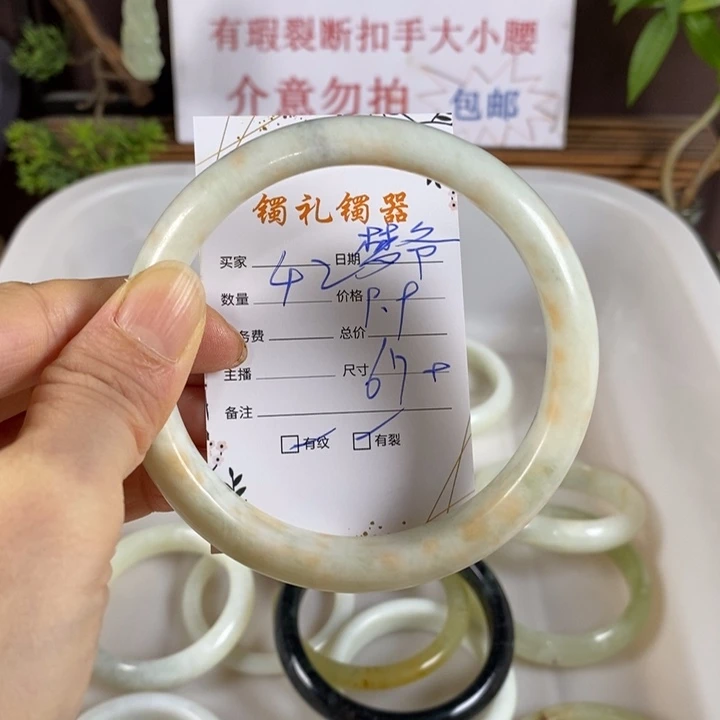 有瑕裂断扣手大小腰
介意勿拍 包邮
镯礼镯器
买家 42 日期
数量 价格 9.9
务费 总价
主播 尺寸 67+
备注
有纹 有裂